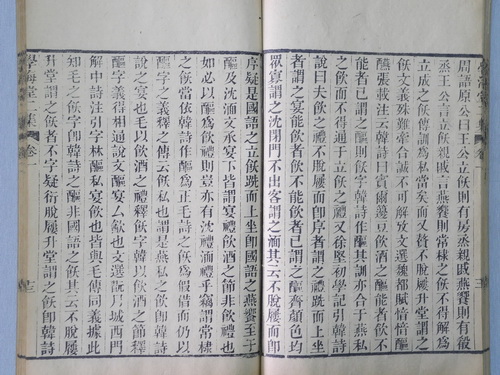 周語原公曰王公立飫則有房烝親戚燕饗則有殽
烝王公言立飫親戚言燕饗則常棣之飫不得解爲
立成之飫傳訓爲私當矣而又贅不脫屨升堂謂之
飫文義殊難牽合誠不可解攷文選魏都賦愔愔醧
醼張載注云韓詩曰賓爾籩豆飲酒之醧能者飲不
能者已謂之醧則飫韓詩作醧其訓亦合于燕私
之飫而不得通于立飫之飫又徐堅初學記引韓詩
說曰夫飲之禮不脫屨而即序者謂之禮跣而上坐
者謂之宴能飲者飲不能飲者已謂之醧齊顏色均
眾寡謂之沈閉門不出客謂之湎其云不脫屨而即
序疑是國語之立飫跣而上坐即國語之燕饗至于
醧及沈湎文承宴下皆謂宴禮飲酒之節非飫禮也
如必以醧爲飫禮則豈亦有沈禮湎禮乎竊謂常棣
之飫當依韓詩作醧爲正毛詩之飫爲假借而仍以
醧字之義釋之傳云飫私也謂是燕私之飫非韓詩
說之宴也毛以飲酒之禮釋飫字韓以飲酒之節釋
醧字義得相通說文醧宴厶飲也文選翫月城西門
解中詩注引字林醧私宴飲也皆與毛傳同義據此
知毛之飫字即韓詩之醧非國語之飫其云不脫屨
升堂謂之飫者不字疑衍脫屨升堂謂之飫即韓詩
學海堂二集 卷一